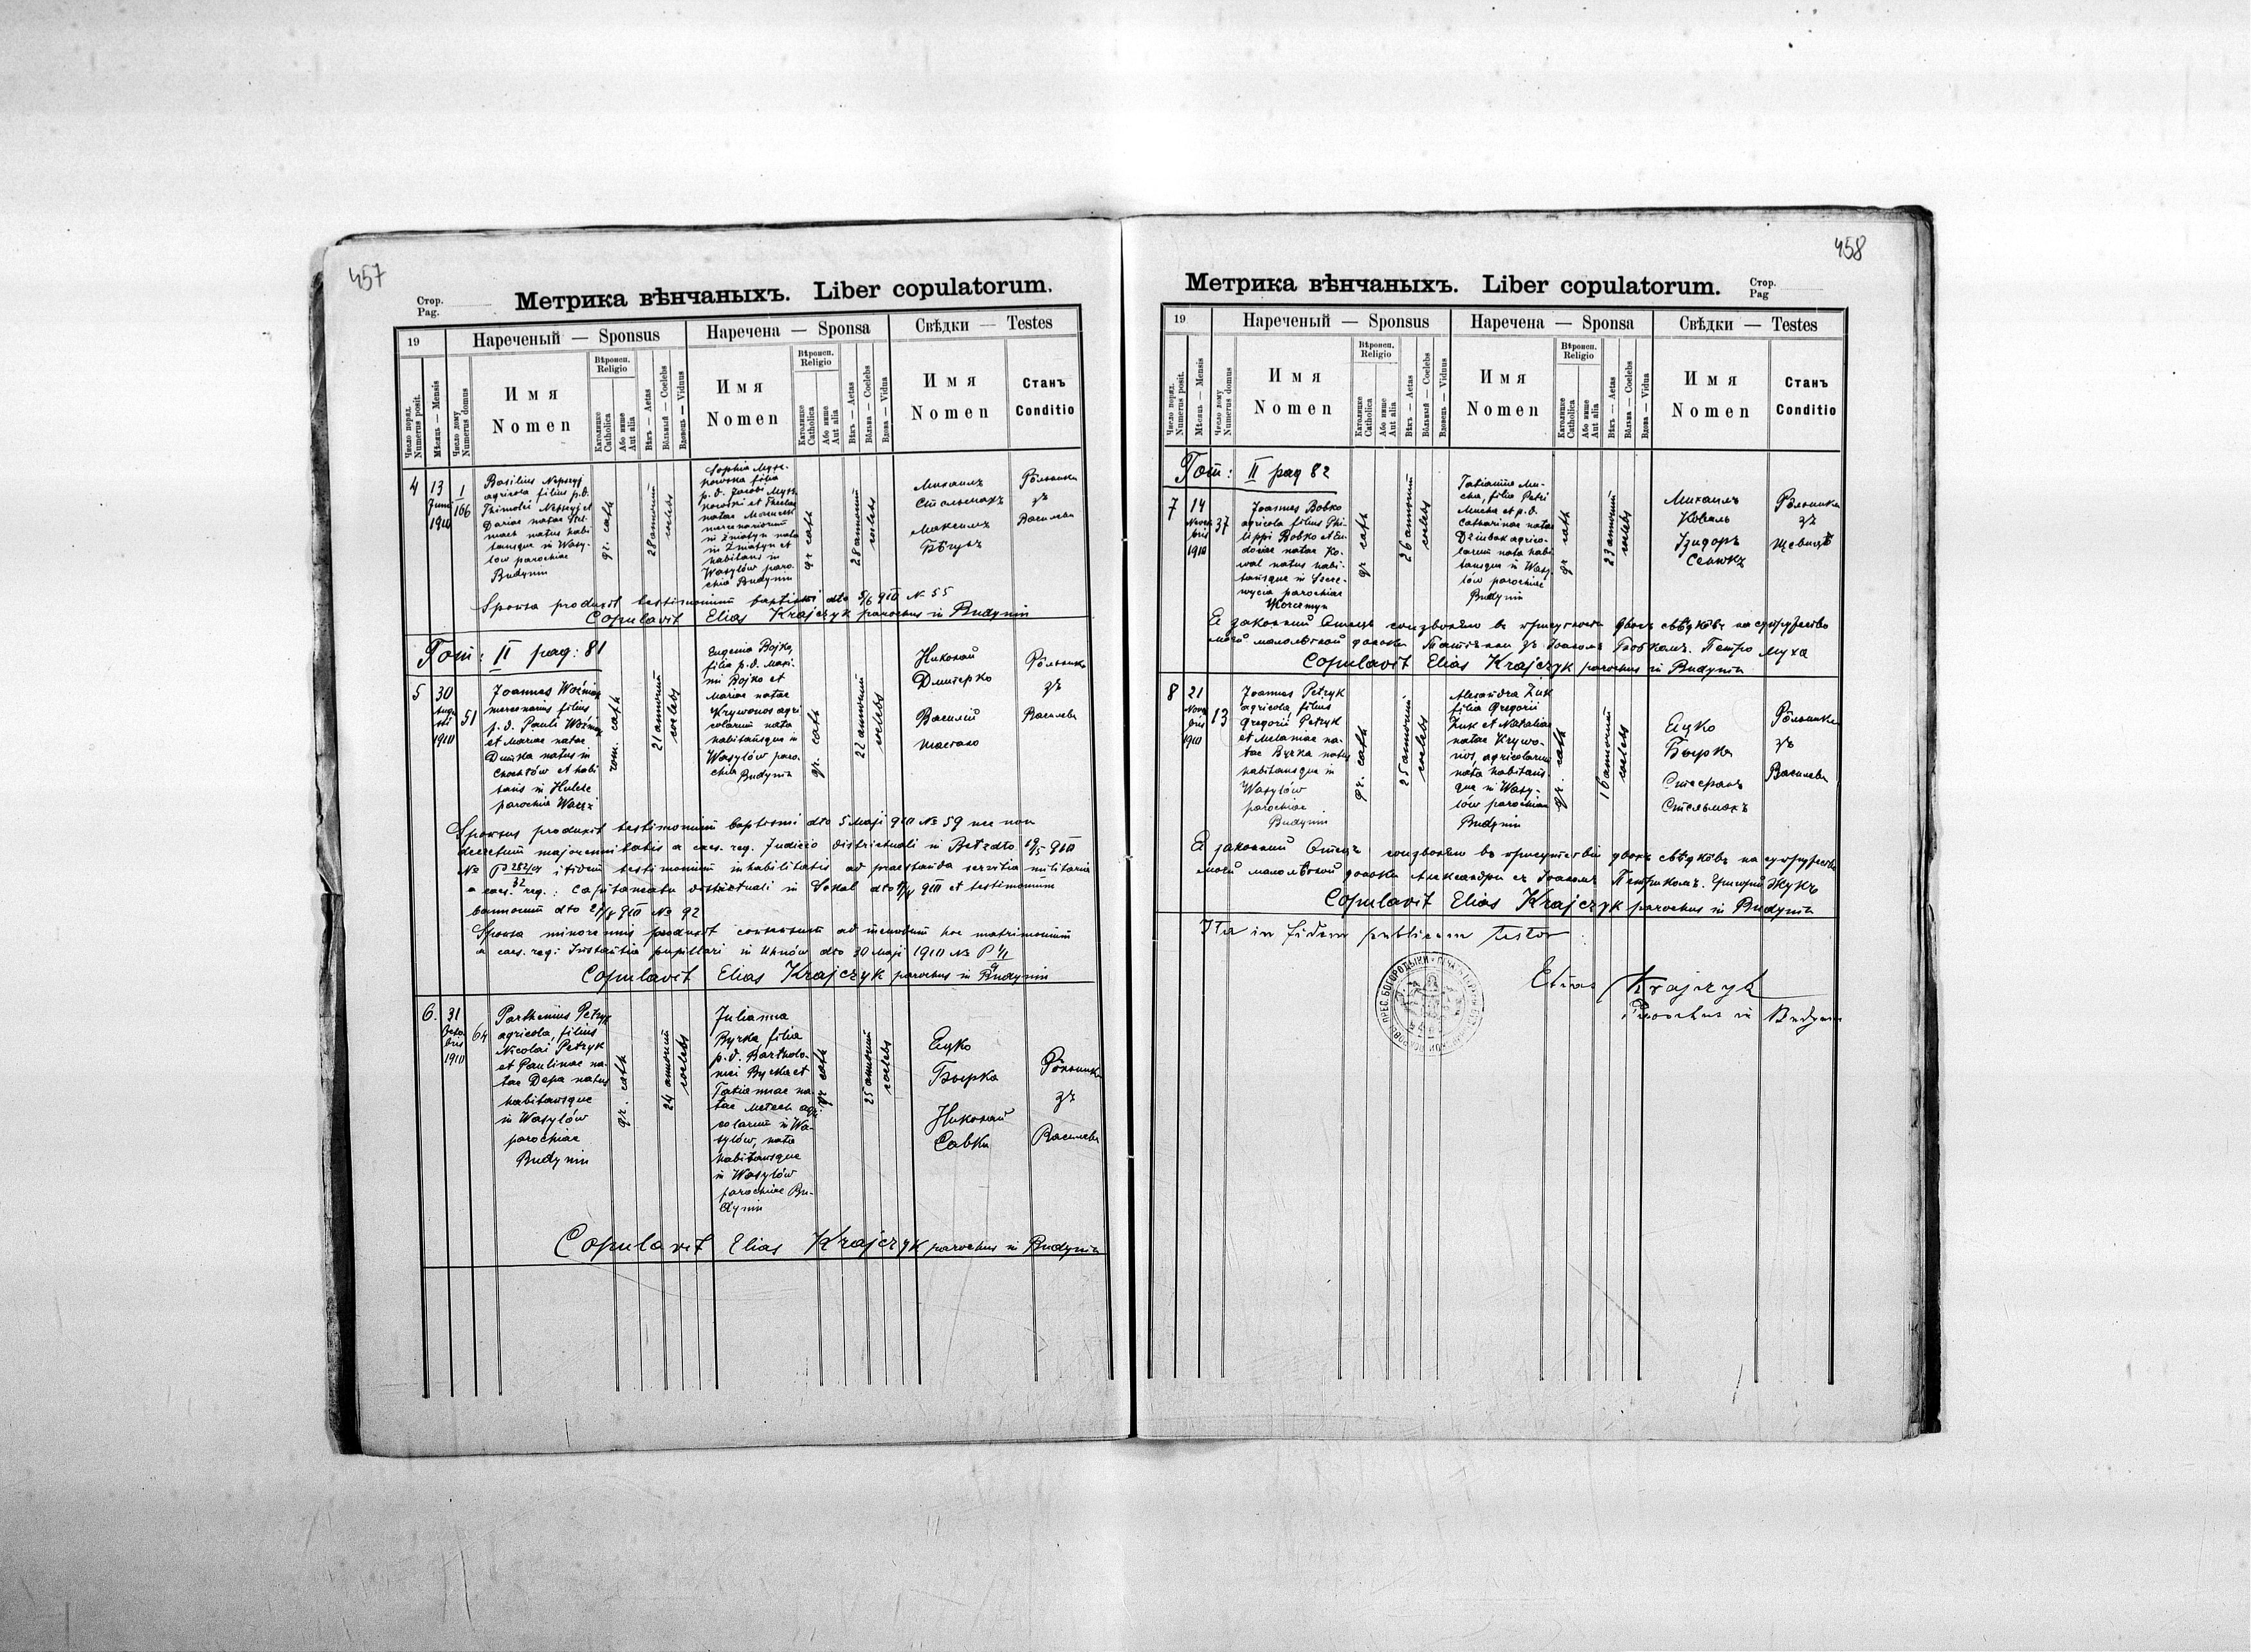 457
Стор.
Pag.
Метрика вѣнчаныхъ. Liber copulatorum.
19
Нареченый — Sponsus
Наречена — Sponsa
Свѣдки — Testes
Число поряд.
Numerus posit.
Мѣсяць — Mensis
Число дому
Numerus domus
Имя
Nomen
Вѣроисп.
Religio
Католицке
Catholica
Або инше
Aut alia
Вѣкъ — Aetas
Вôльный — Coelebs
Вдовець — Viduus
Имя
Nomen
Вѣроисп.
Religio
Католицке
Catholica
Або инше
Aut alia
Вѣкъ — Aetas
Вôльна — Coelebs
Вдова — Vidua
Имя
Nomen
Станъ
Conditio
4
13
Junii
1910
1
166
Basilius
agricola filius p.d.
Thimotei
Dariae natae
natus habi
tansque in Wasy-
low parochiae
Budynin
gr. cath
28 annorum
coelebs
Sophia
filia
p.d. Jacobi
et Theclae
natae
mercenariorum
in Żniatyn nata
in Żniatyn et
habitans in
Wasylów paro-
chia Budynin
gr cath
28 annorum
coelebs
Михаилъ
Стельмахъ
Максимъ
Бѣгунъ
Рôльники
зъ
Василева
Sponsa produxit testimonium baptismi dto 5/6 910 N. 55
Copulavit Elias Krajczyk parochus in Budynin
Tom: II pag: 81
5
30
Augu
sti
1910
51
Joannes
mercenarius filius
p.d. Pauli
et Mariae natae
natus in
Chochłów et habi
tans in Hulcze
parochia
rom. cath
21 annorum
coelebs
Eugenia Bojko,
filia p.d. Maxi-
mi Bojko et
Mariae natae
Krywonos agri
colarum nata
habitansque in
Wasylów paro-
chia Budynin
gr. cath
22 annorum
coelebs
Николай
Дмитерко
Василій
Рôльники
зъ
Василева
Sponsus produxit testimonium baptismi dto 5 Maji 910 No 59 nec non
decretum majorennitatis a caes. reg. Judicio districtuali in Bełz dto 910
No itidem testimonium inhabilitatis ad praestanda servitia militaria
a caes. reg.: Capitaneatu districtuali in Sokal dto 910 et testimonium
bannorum dto 910 No 92
Sponsa minorennis produxit consensum ad ineundum hoc matrimonium
a caes. reg: Instantia pupillari in Uhnów dto 30 Maji 1910 No P
Copulavit Elias Krajczyk parochus in Budynin
6.
31
Octo-
bris
1910
64
Parthenius Petryk
agricola, filius
Nicolai Petryk
et Paulinae na-
tae Depa natus
habitansque
in Wasylów
parochiae
Budynin
gr. cath
24 annorum
coelebs
Julianna
Byrka filia
p.d. Bartholo-
mei Byrka et
Tatiannae na-
tae agri-
colarum in Wa-
sylów, nata
habitansque
in Wasylów
parochiae Bu-
dynin
gr cath
25 annorum
coelebs
Ецко
Бырка
Николай
Савка
Рôльники
зъ
Василева
Copulavit Elias Krajczyk parochus in Budynin
458
Метрика вѣнчаныхъ. Liber copulatorum.
Стор.
Pag
19
Нареченый — Sponsus
Наречена — Sponsa
Свѣдки — Testes
Число поряд.
Numerus posit.
Мѣсяць — Mensis
Число дому
Numerus domus
Имя
Nomen
Вѣроисп.
Religio
Католицке
Catholica
Або инше
Aut alia
Вѣкъ — Aetas
Вôльный — Coelebs
Вдовець — Viduus
Имя
Nomen
Вѣроисп.
Religio
Католицке
Catholica
Або инше
Aut alia
Вѣкъ — Aetas
Вôльна — Coelebs
Вдова — Vidua
Имя
Nomen
Станъ
Conditio
Tom: II pag 82
7
14
Novem
bris
1910
37
Joannes Bobko
agricola filius Phi-
lippi Bobko et Eu-
dociae natae Ko-
wal natus habi-
tansque in
parochiae
gr cath
26 annorum
coelebs
Tatianna Mu-
cha, filia Petri
Mucha et p.d.
Catharinae natae
Dziubak agrico-
larum nata habi
tansque in Wasy-
lów parochiae
Budynin
gr cath
23 annorum
coelebs
Михаилъ
Коваль
Ізидоръ
Сенюкъ
Рôльники
зъ
Я законный Отець соизволяю въ присутности двохъ свѣдковъ на супружество
моей малолѣтной доньки Татіанны зъ Іоаномъ Бобкомъ. Петро Муха
Copulavit Elias Krajczyk parochus in Budynin
8
21
Novem
bris
1910
13
Joannes Petryk
agricola, filius
Gregorii Petryk
et Melaniae na-
tae Byrka natus
habitansque in
Wasylów
parochiae
Budynin
gr. cath
25 annorum
coelebs
Alexandra Żuk
filia Gregorii
Żuk et Nataliae
natae Krywo-
nos, agricolarum
nata habitans-
que in Wasy-
lów parochiae
Budynin
gr. cath
16 annorum
coelebs
Ецко
Бырка
Стефанъ
Стельмахъ
Рôльники
зъ
Василева
Я законный Отець соизволяю въ присутствіи двохъ свѣдковъ на супружество
моей малолѣтной доньки Александры съ Іоаномъ Петрикомъ. Григорій Жукъ
Copulavit Elias Krajczyk parochus in Budynin
Ita in fidem publicam testor
Elias Krajczyk
Parochus in Budynin
ПРЕС. БОГОРОДЫЦИ